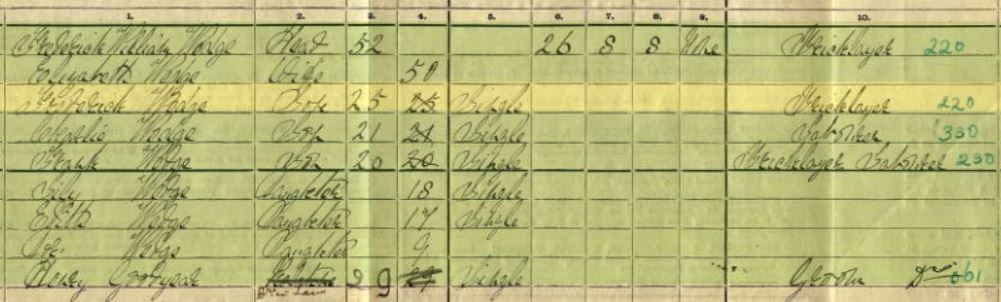 1. 2. 3. 4. 5. 6. 7. 8. 9. 10.
Frederick William Wedge Head 52 26 8 8 None Bricklayer 220
Elizabeth Wedge Wife 50
Frederick Wedge Son 25 25 Single Bricklayer 220
Charlie Wedge Son 21 21 Single Labourer 330
Frank Wedge Son 20 20 Single Bricklayer Labourer 230
Lily Wedge Daughter 18 Single
Edith Wedge Daughter 17 Single
Wedge Daughter 9
Henry Goodyear 29 29 Single Groom 061
Bro in Law